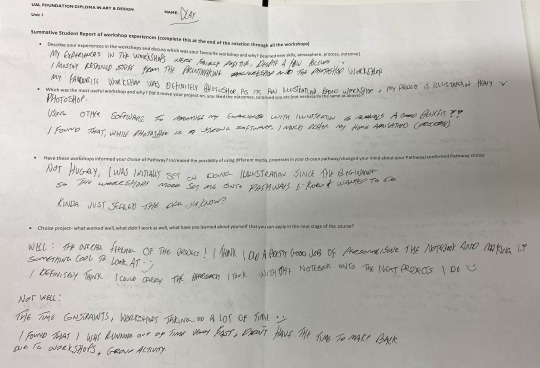 UAL FOUNDATION DIPLOMA IN ART & DESIGN
NAME:
Unit 1
Summative Student Report of workshop experiences (complete this at the end of the rotation through all the workshops)
• Describe your experiences in the workshops and discuss which was your favourite workshop and why? (learned new skills, atmosphere, process, outcome)
MY EXPERIENCES IN THE WORKSHOPS WERE FAIRLY POSITIVE, DESPITE A FEW
I MOSTLY RETAINED STUFF FROM THE PRINTMAKING AND THE PHOTOSHOP WORKSHOP
MY FAVOURITE WORKSHOP WAS DEFINITELY PHOTOSHOP AS ITS AN ILLUSTRATION BASED WORKSHOP, MY PROJECT IS ILLUSTRATION HEAVY
• Which was the most useful workshop and why? Did it move your project on, you liked the outcomes, surprised you etc (not necessarily the same as above)?
PHOTOSHOP.
USING OTHER SOFTWARE TO MY EXPERIENCE WITH ILLUSTRATION IS ALWAYS A GOOD BENEFIT??
I FOUND THAT, WHILE PHOTOSHOP IS A SOFTWARE, I MUCH PREFER MY HOME APPLICATION
• Have these workshops informed your choice of Pathway? Increased the possibility of using different media, processes in your chosen pathway/changed your mind about your Pathway/confirmed Pathway choice
NOT HUGELY, I WAS INITIALLY SET ON DOING ILLUSTRATION SINCE THE BEGINNING
SO THE WORKSHOPS MORE SET ME ONTO PATHWAYS I KNEW I WANTED TO DO
KINDA JUST SEALED THE DEAL, YA'KNOW?
• Choice project- what worked well, what didn't work as well, what have you learned about yourself that you can apply in the next stage of the course?
WELL: THE OVERALL FEELING OF THE PROJECT! I THINK I DID A PRETTY GOOD JOB OF PERSONALISING THE NOTEBOOK AND MAKING IT
SOMETHING COOL TO LOOK AT :)
I DEFINITELY THINK I COULD CARRY THE APPROACH I TOOK WITH THE NOTEBOOK ONTO THE NEXT PROJECTS I DO
NOT WELL:
THE TIME CONSTRAINTS, WORKSHOPS TAKING UP A LOT OF TIME
I FOUND THAT I WAS RUNNING OUT OF TIME VERY FAST, DIDN'T HAVE THE TIME TO MAKE BACK
DUE TO WORKSHOPS, GROUP ACTIVITY.